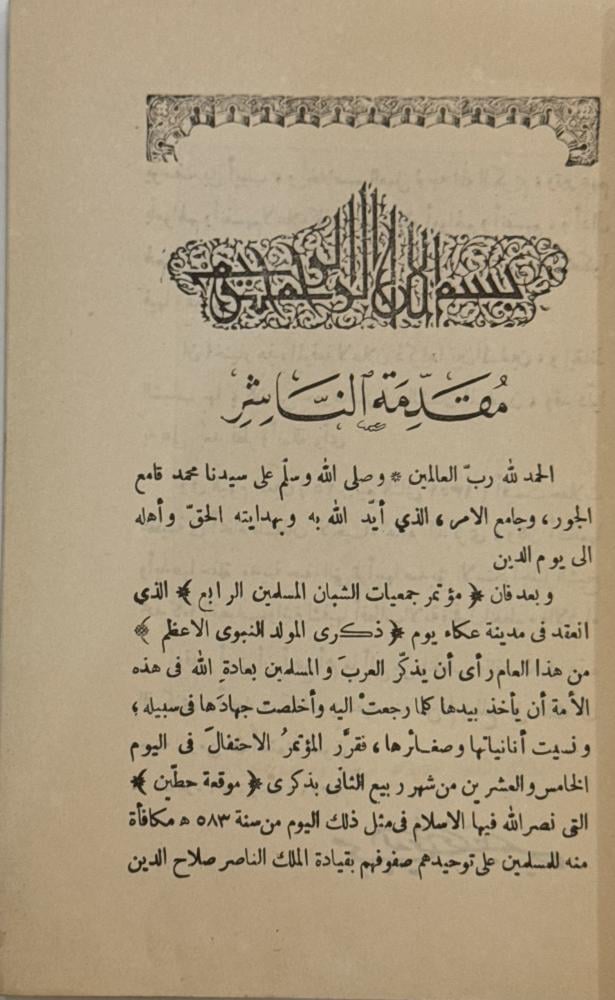 بسم الله الرحمن الرحيم
مُقَدِّمَة النَّاشِرِ
الحمد لله ربّ العالمين * وصلى الله وسلّم على سيدنا محمد قامع
الجور، وجامع الامر، الذي أيّد الله به وبهدايته الحقّ وأهله
الى يوم الدين
وبعد فان ﴿ مؤتمر جمعيات الشبان المسلمين الرابع ﴾ الذي
انعقد فى مدينة عكاء يوم ﴿ ذكرى المولد النبوى الاعظم ﴾
من هذا العام رأى أن يذكّر العربَ والمسلمين بعادةِ الله فى هذه
الأمة أن يأخذ بيدها كلما رجعتْ اليه وأخلصت جهادَها فى سبيله؛
ونسيت أنانياتها وصغائرها، فقرَّر المؤتمرُ الاحتفالَ فى اليوم
الخامس والعشرين من شهر ربيع الثانى بذكرى ﴿ موقعة حطّين ﴾
التى نصر الله فيها الاسلام فى مثل ذلك اليوم من سنة ٥٨٣ ھ مكافأة
منه للمسلمين على توحيدهم صفوفهم بقيادة الملك الناصر صلاح الدين